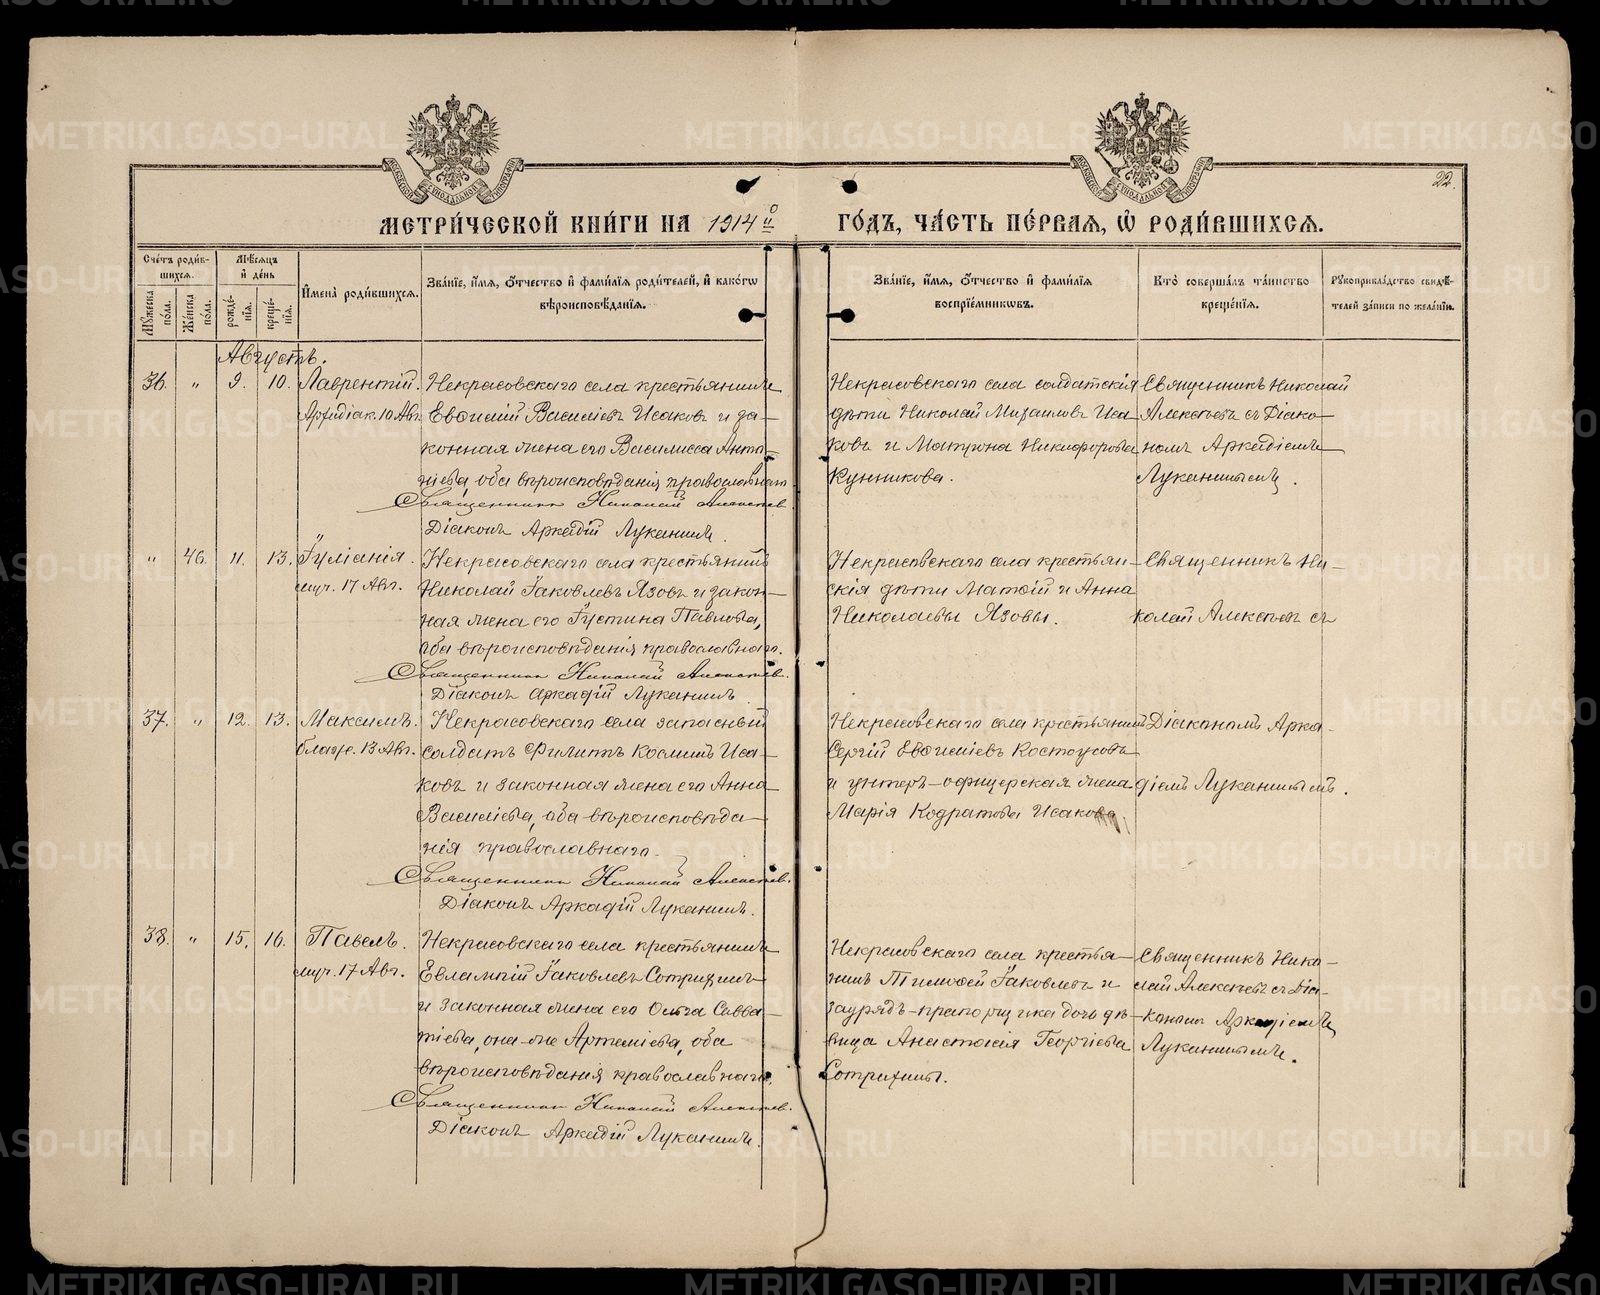 22.
МЕТРИ́ЧЕСКОЙ КНИ́ГИ НА 1914 го
ГО́ДЪ, ЧА́СТЬ ПЕ́РВАЯ, Ѽ РОДИ́ВШИХСЯ.
Сче́тъ роди́вшихся.
Му́жеска по́ла.
Же́нска по́ла.
Мѣ́сяцъ и де́нь
рожде́нїя.
креще́нїя.
Имена̀ роди́вшихся.
Зва́нїе, и́мя, о́тчество и фами́лїя роди́телей, и како́гѡ вѣроисповѣ́данїя.
Зва́нїе, и́мя, о́тчество и фами́лїя воспрїе́мникѡвъ.
Кто̀ соверша́лъ та́инство креще́нїя.
Рꙋкоприкла́дство свидѣ́телей за́писи по жела́нїю.
Августъ.
36. „ 9. 10. Лаврентій.
Архидіак. 10 Авг.
Некрасовскаго села крестьянинъ
Евѳимій Василіевъ Исаковъ и за-
конная жена его Василисса Анто-
ніева, оба вѣроисповѣданія православнаго.
Священникъ Николай Алексѣев.
Діаконъ Аркадій Луканинъ.
Некрасовскаго села солдатскія
дѣти Николай Михаиловъ Иса
ковъ и Матрона Никифорова
Кунникова.
Священникъ Николай
Алексѣевъ съ Діако-
номъ Аркадіемъ
Луканинымъ.
„ 46. 11. 13. Іуліанія.
муч. 17 Авг.
Некрасовскаго села крестьянинъ
Николай Іаковлевъ Язовъ и закон-
ная жена его Іустина Павлова,
оба вѣроисповѣданія православнаго.
Священникъ Николай Алексѣев.
Діаконъ Аркадій Луканинъ
Некрасовскаго села крестьян-
скія дѣти Матѳій и Анна
Николаевы Язовы.
Священникъ Ни-
колай Алексѣевъ съ
37. „ 12. 13. Максимъ.
блаж. 13 Авг.
Некрасовскаго села запасный
солдатъ Филиппъ Косминъ Иса-
ковъ и законная жена его Анна
Василіева, оба вѣроисповѣда-
нія православнаго.
Священникъ Николай Алексѣев.
Діаконъ Аркадій Луканинъ.
Некрасовскаго села крестьянинъ
Сергій Евѳиміевъ Костоусовъ
и унтеръ-офицерская жена
Марія Кодратова Исакова.
Діакономъ Арка-
діемъ Луканинымъ.
38. „ 15. 16. Павелъ.
муч. 17 Авг.
Некрасовскаго села крестьянинъ
Евлампій Іаковлевъ Сотрихинъ
и законная жена его Ольга Савва-
тіева, она-же Артеміева, оба
вѣроисповѣданія православнаго.
Священникъ Николай Алексѣев.
Діаконъ Аркадій Луканинъ.
Некрасовскаго села крестья-
нинъ Тимоѳей Іаковлевъ и
заурядъ-прапорщика дочь дѣ-
вица Анастасія Георгіева
Сотрихины.
Священникъ Нико-
лай Алексѣевъ съ Діа-
кономъ Аркадіемъ
Луканинымъ.
METRIKI.GASO-URAL.RU